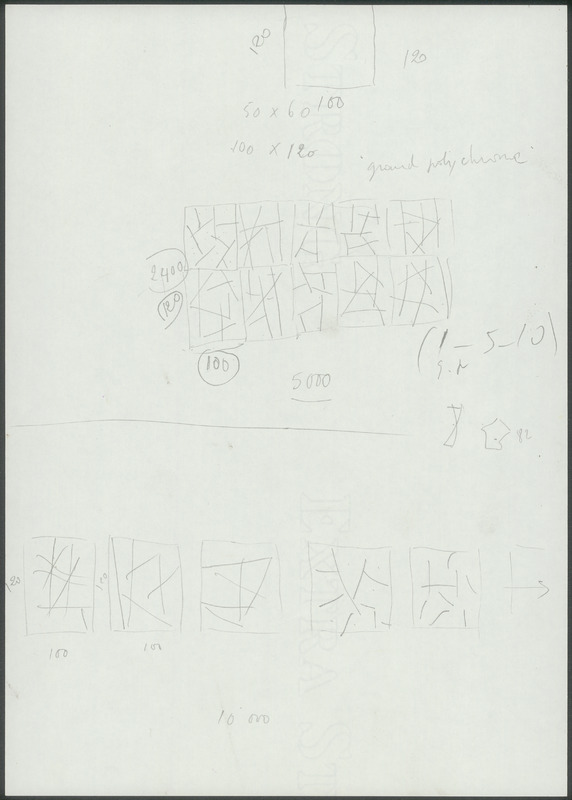 120
120
100
50 x 60
100 x 120
"grand polychrome"
2400
120
100
5000
(1 - 5 - 10)
82
120
120
100
100
10 000
EXTRA ST